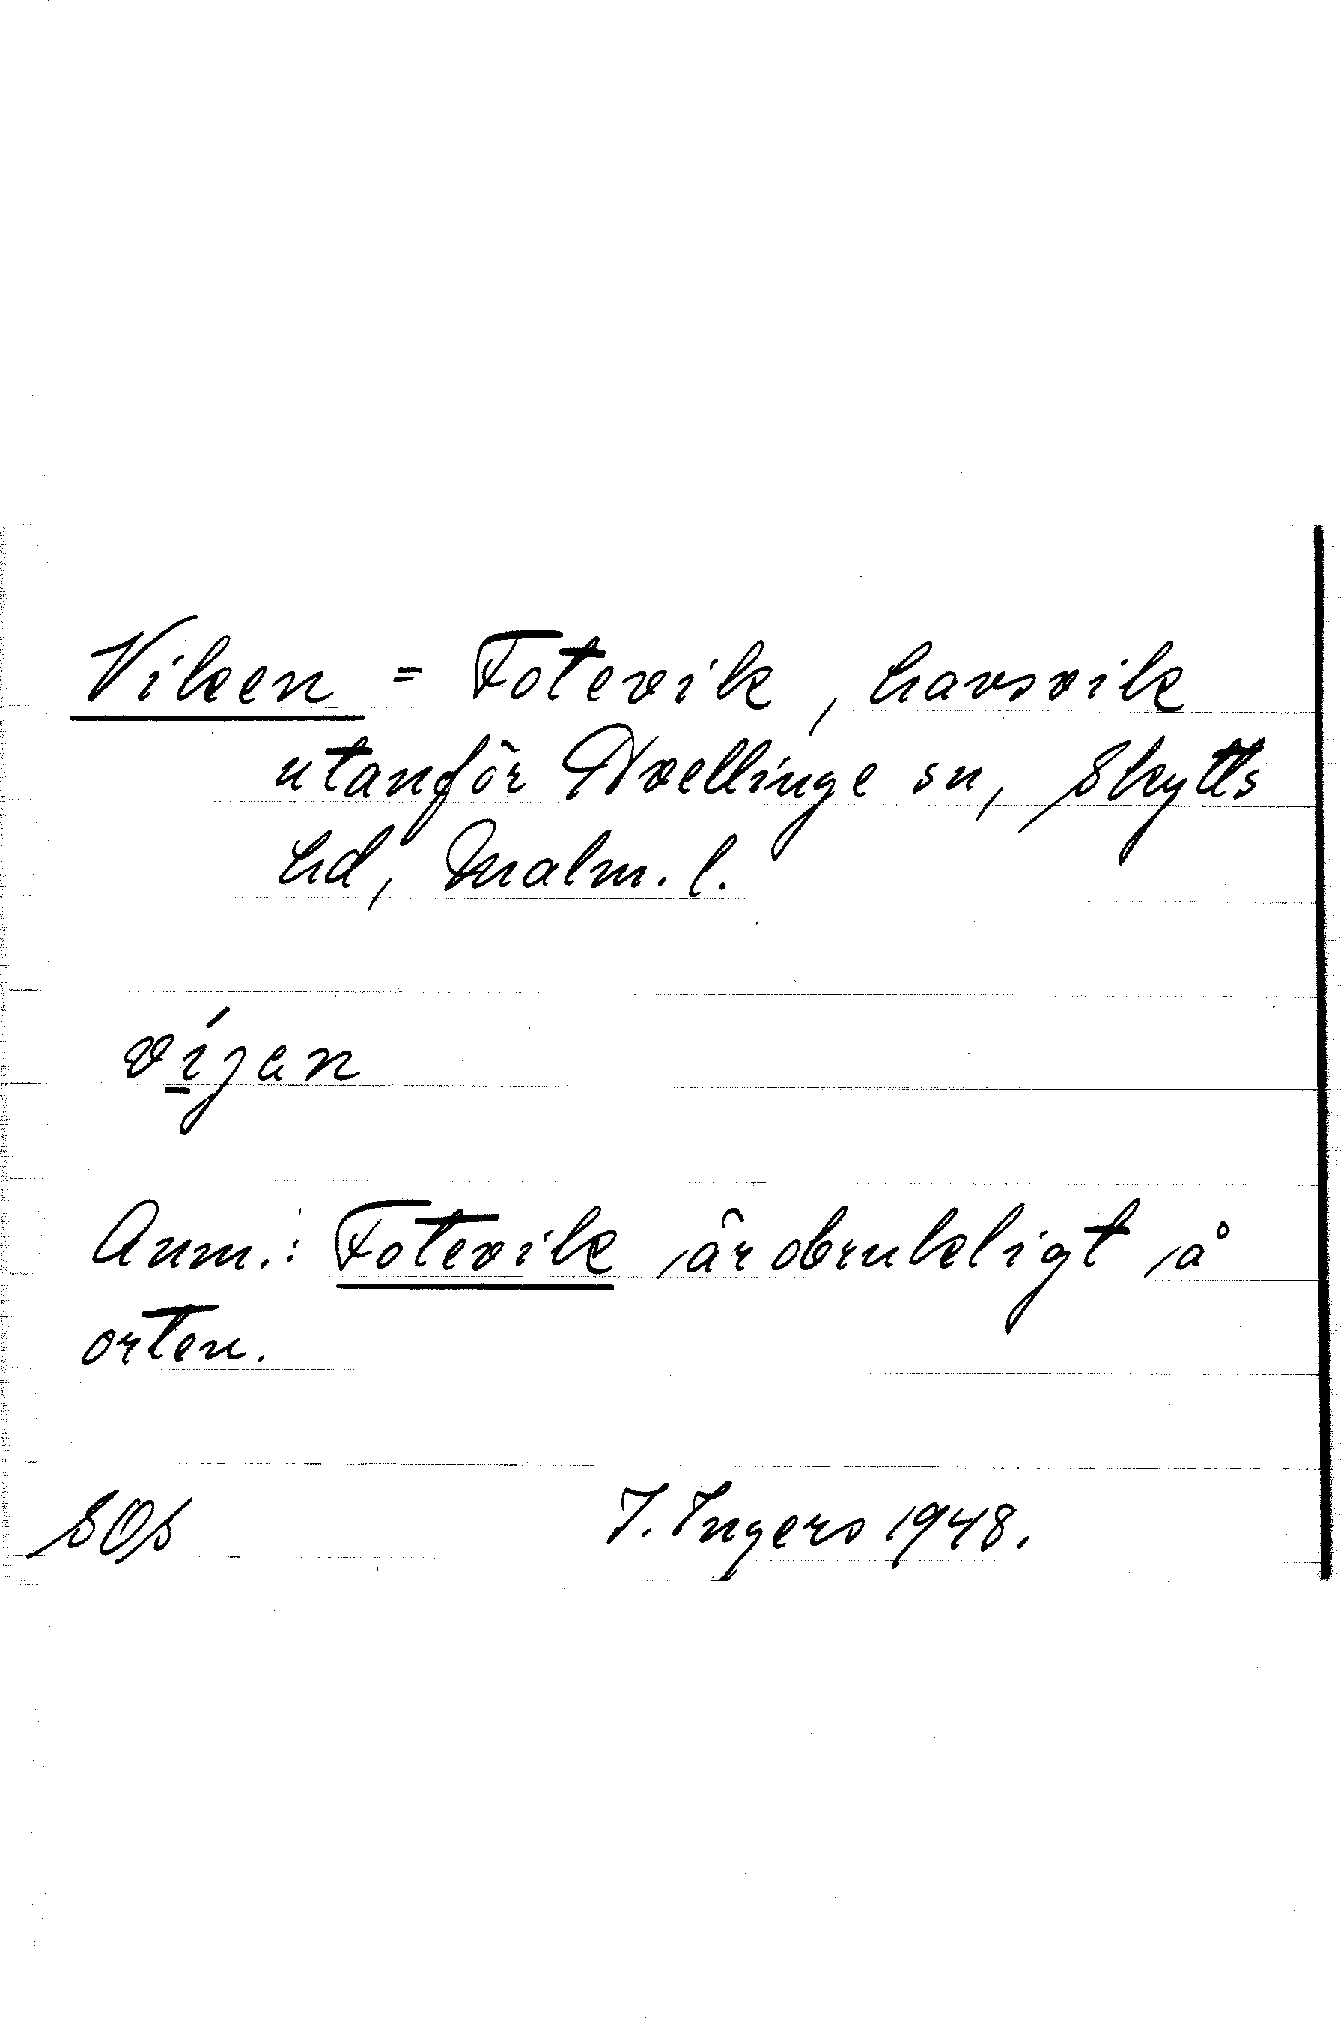 Viken = Fotevik, havsvik
utanför Vellinge sn, Skytts
hd, Malm. l.
víjan
Anm.: Fotevik är obrukligt å
orten.
SOS I. Ingers 1948.